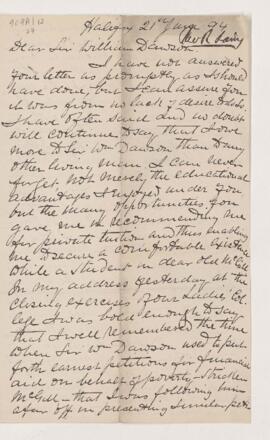 Halifax 21st June 94
Rev R Laing
Dear Sir William Dawson.
I have not answered
your letter as promptly, as I should
have done, but I can assure you
it was from no lack of desire to do so.
I have often said and no doubt
will continue to say, that I owe
more to Sir Wm Dawson than to any
other living man. I can never
forget, not merely, the educational
advantages I enjoyed under you
but the many opportunities, you
gave me in recommending me
for private tuition and thus enabling
me to secure a comfortable
while a student in dear old McGill
In my address yesterday at the
closing exercises of our Ladies' Col-
lege I was bold enough to say
that I well remembered the time
when Sir Wm Dawson used to put
forth earnest petitions for financial
aid on behalf of poverty-stricken
McGill - that I was following him
afar off in presenting similar peti-